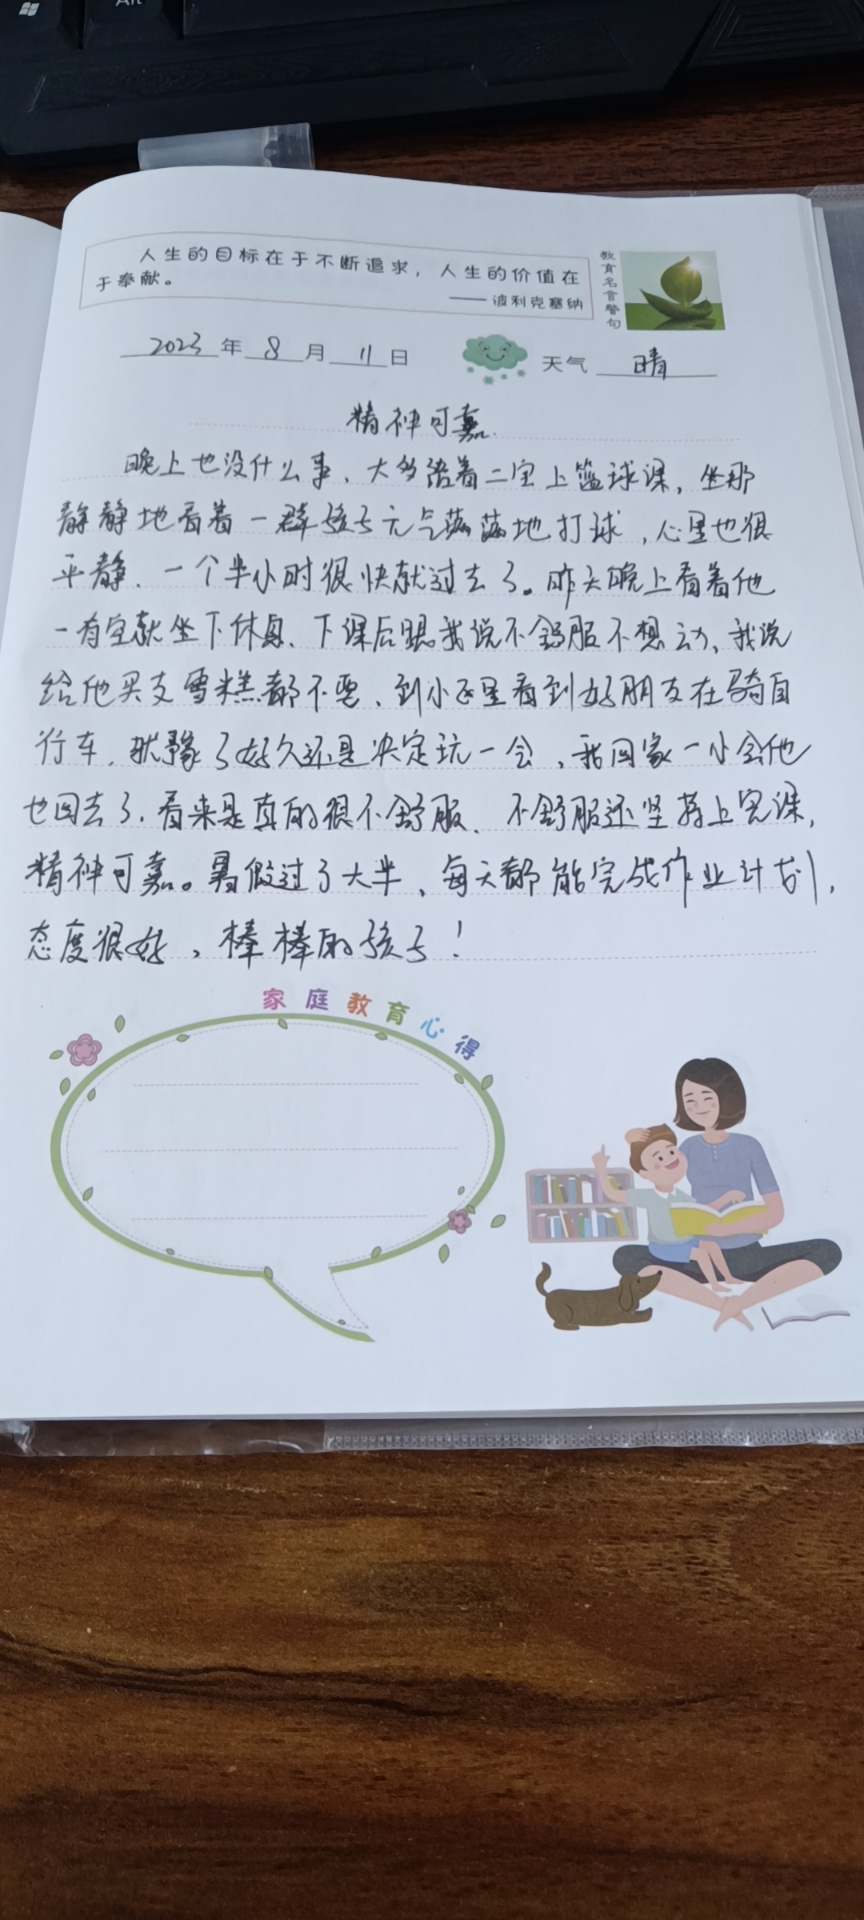 Alt
人生的目标在于不断追求，人生的价值在
于奉献。
——波利克塞纳
教育名言警句
2023年8月11日
天气 晴
精神可嘉
晚上也没什么事、大多陪着二宝上篮球课，坐那
静静地看着一群孩子元气满满地打球，心里也很
平静、一个半小时很快就过去了。昨天晚上看着他
一有空就坐下休息、下课后跟我说不舒服不想动、我说
给他买支雪糕都不要、到小区里看到好朋友在骑自
行车，犹豫了好久还是决定玩一会、我回家一小会他
也回去了，看来是真的很不舒服、不舒服还坚持上完课，
精神可嘉。暑假过了大半、每天都能完成作业计划，
态度很好、棒棒的孩子！
家庭教育心得